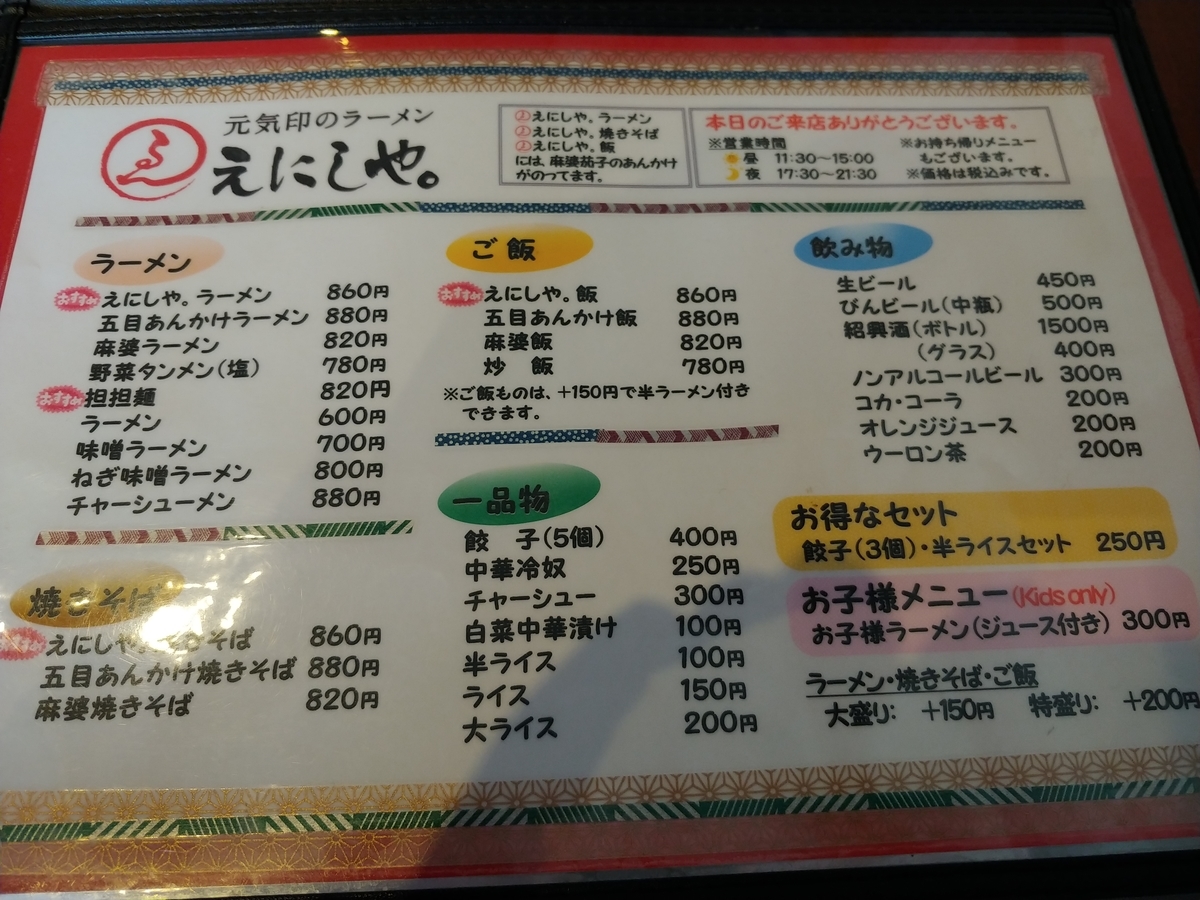 元気印のラーメン
えにしや。
えにしや。ラーメン
えにしや。焼きそば
えにしや。飯
には、麻婆茄子のあんかけ
がのってます。
本日のご来店ありがとうございます。
※営業時間
昼 11:30〜15:00
夜 17:30〜21:30
※お持ち帰りメニュー
もございます。
※価格は税込みです。
ラーメン
おすすめ えにしや。ラーメン 860円
五目あんかけラーメン 880円
麻婆ラーメン 820円
野菜タンメン(塩) 780円
おすすめ 担担麺 820円
ラーメン 600円
味噌ラーメン 700円
ねぎ味噌ラーメン 800円
チャーシューメン 880円
焼きそば
えにしや。焼きそば 860円
五目あんかけ焼きそば 880円
麻婆焼きそば 820円
ご飯
おすすめ えにしや。飯 860円
五目あんかけ飯 880円
麻婆飯 820円
炒 飯 780円
※ご飯ものは、+150円で半ラーメン付き
できます。
一品物
餃 子(5個) 400円
中華冷奴 250円
チャーシュー 300円
白菜中華漬け 100円
半ライス 100円
ライス 150円
大ライス 200円
飲み物
生ビール 450円
びんビール(中瓶) 500円
紹興酒(ボトル) 1500円
(グラス) 400円
ノンアルコールビール 300円
コカ・コーラ 200円
オレンジジュース 200円
ウーロン茶 200円
お得なセット
餃子(3個)・半ライスセット 250円
お子様メニュー(Kids only)
お子様ラーメン(ジュース付き) 300円
ラーメン・焼きそば・ご飯
大盛り: +150円 特盛り: +200円